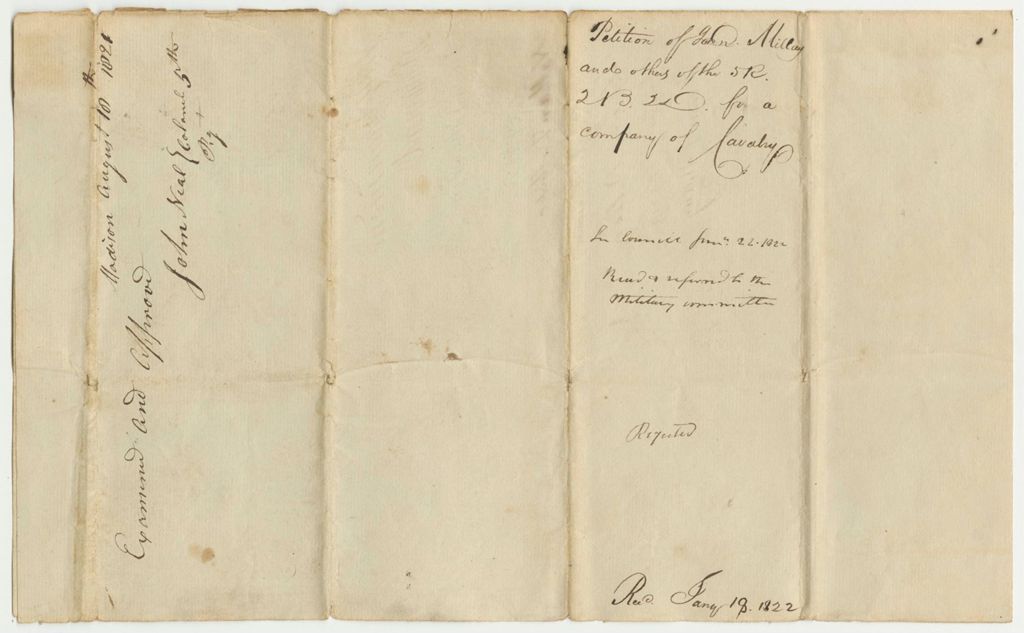 Examined and Approved
Madison August 18th 1821
John Neal } Colonel 5th
Rg
Petition of Millay
and others of the 5 R.
2 B. 2 D. for a
company of Cavalry
In Council Jany. 22. 1822
Read & referred to the
Military committee
Reported
Recd. Jany 18. 1822